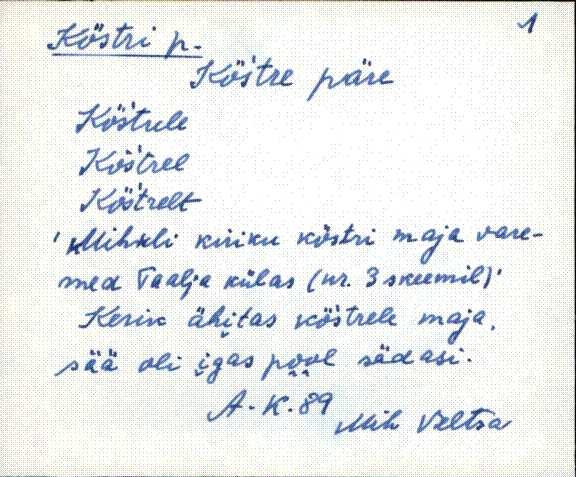 1
Köstri p.
Köstre päre
Köstrele
Köstrel
Köstrelt
'Mihkli kiriku köstri maja vare-
med Taalja külas (nr. 3 skeemil)'
Kerik ähitas köstrele maja,
sää oli igas pool sädasi.
A. K. 89
Mih Veltsa